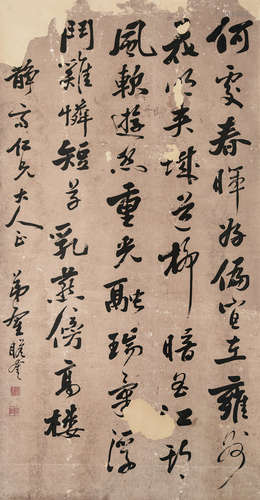 何處春暉好偏宜在雍州
花明夾城道柳暗曲江頭
風軟遊絲重光融瑞氣浮
鬥雞憐短草乳燕傍高樓
靜 仁兄大人正 弟